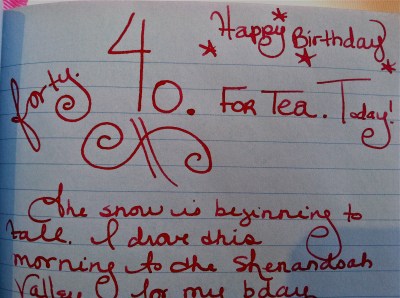 Happy Birthday
forty. 40. FOR TEA. Today!
The snow is beginning to
fall. I drove this
morning to the Shenandoah
Valley for my bday